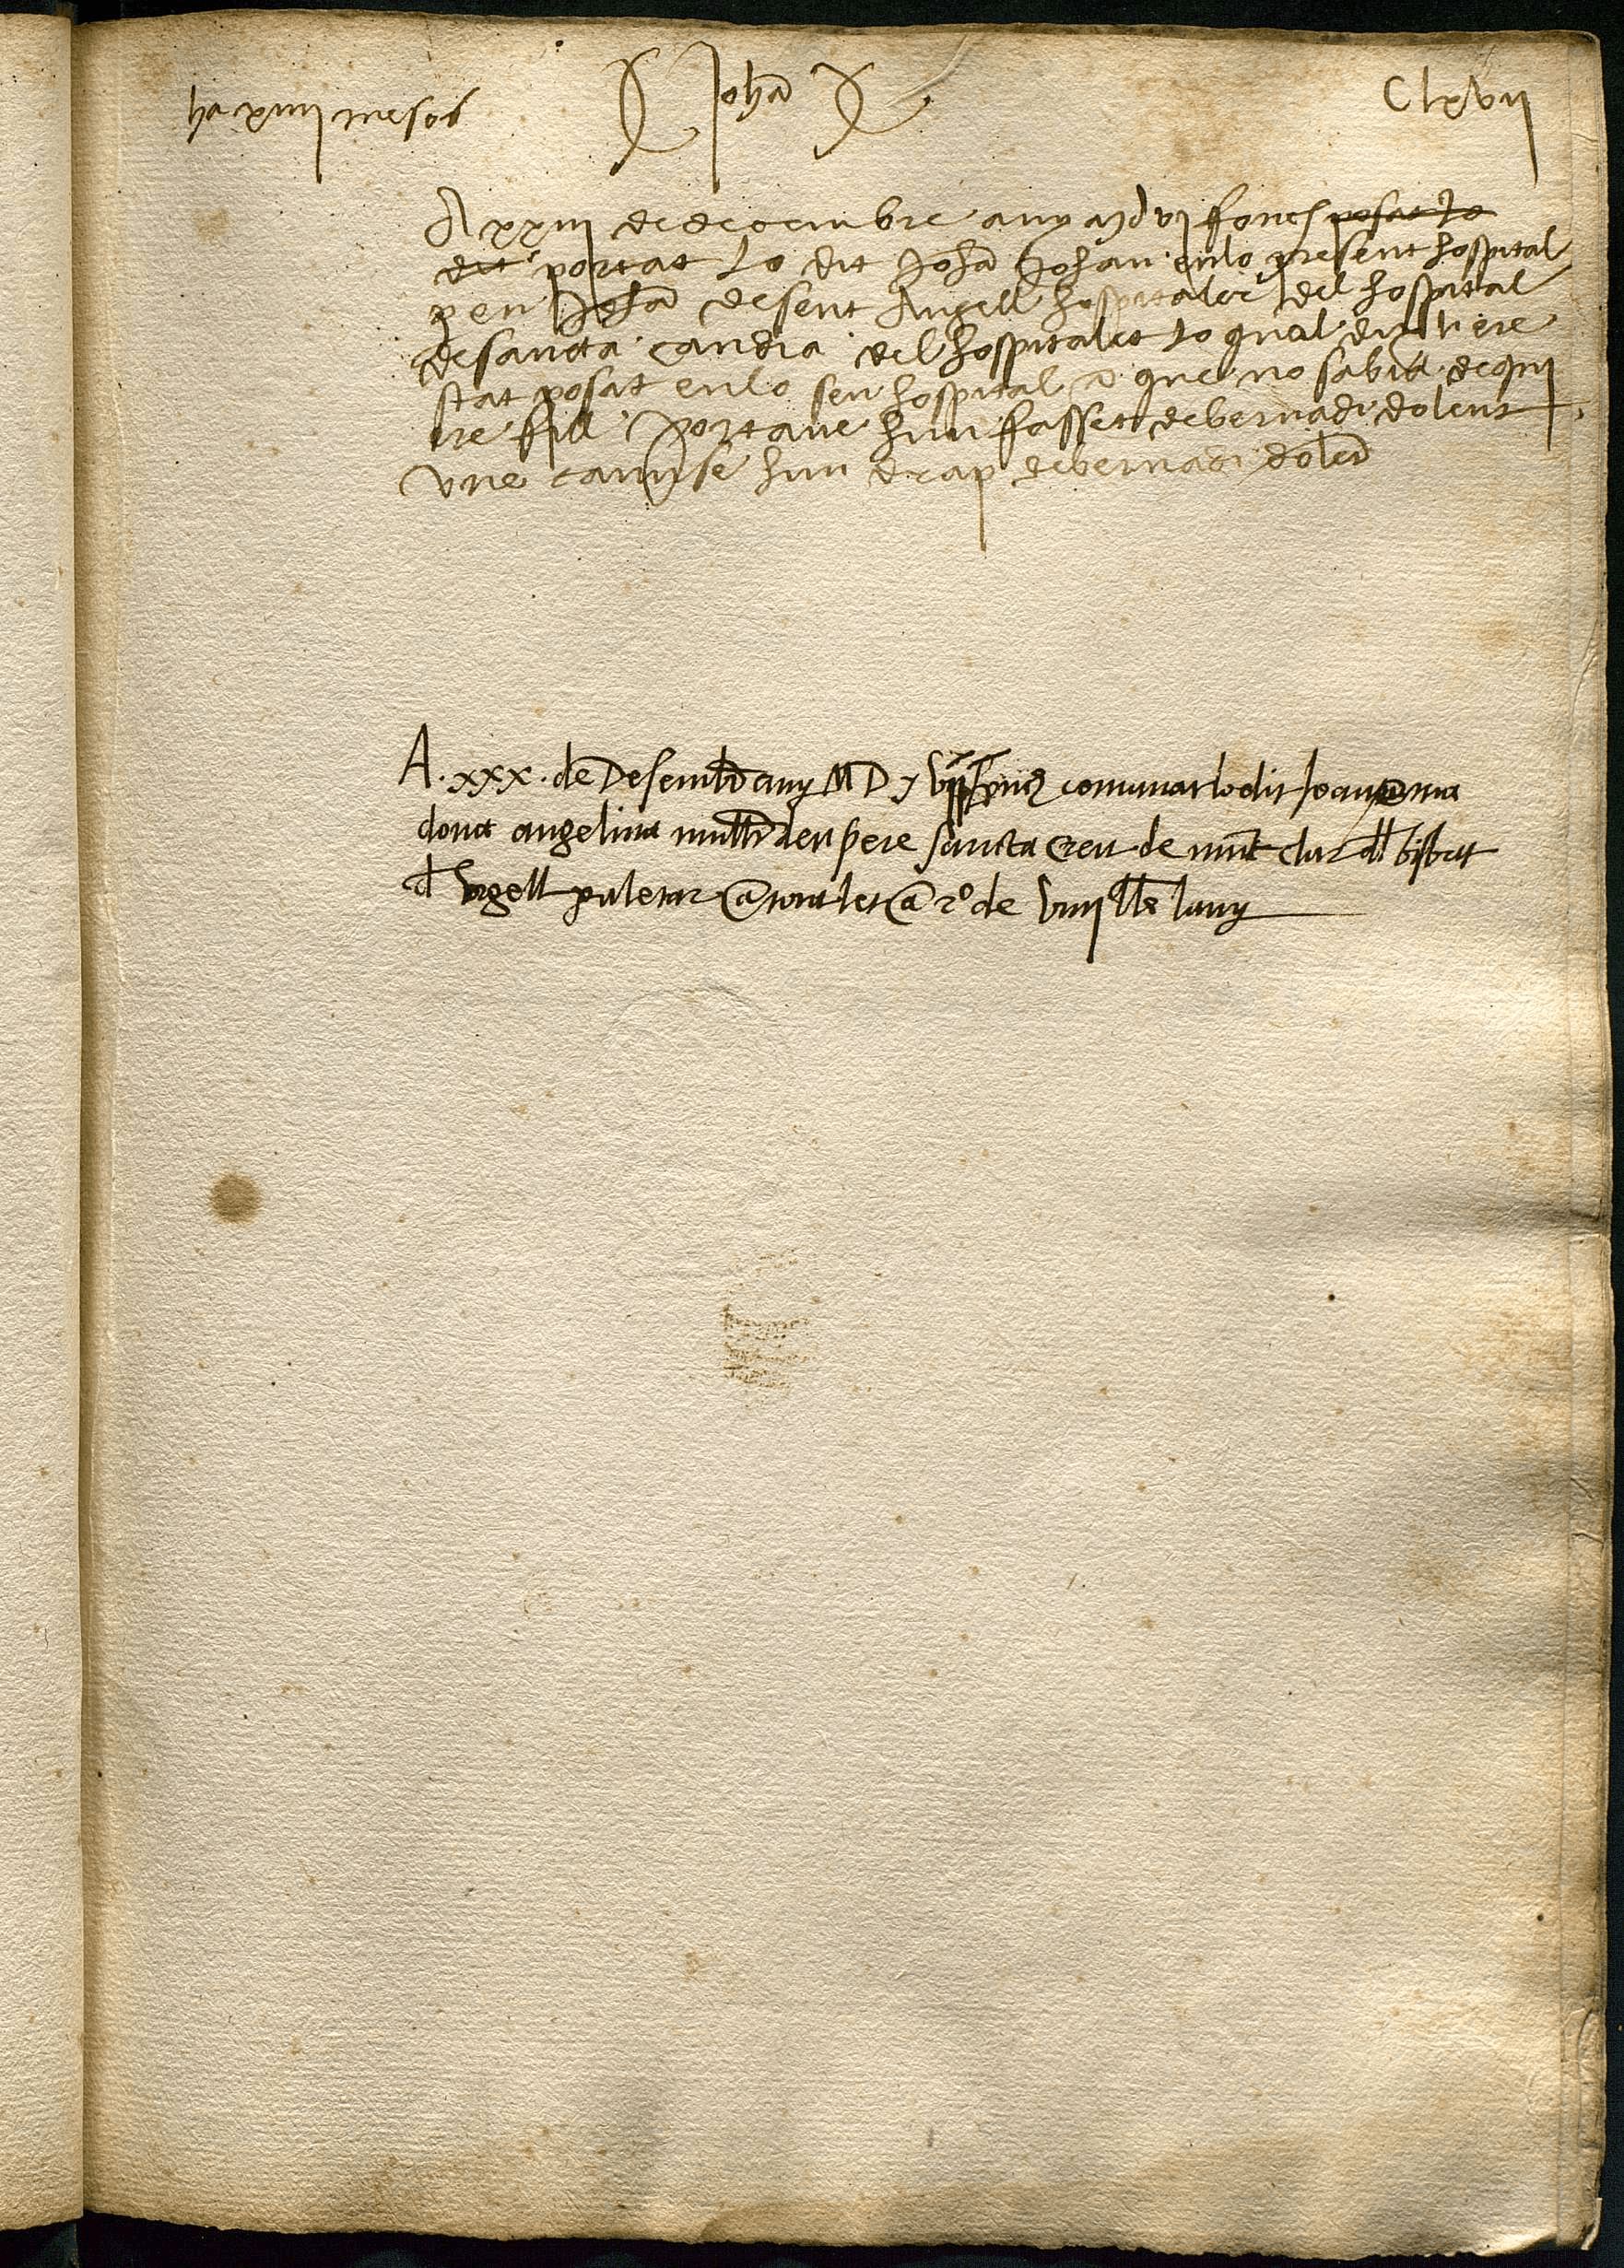 ha xiiii mesos
Johā
Clxvii
A xxiii de decembre any mdvi fonch posat lo
dit portat lo dit Johā Johan en lo present hospital
per en Johā de sent Angell hospitaler del hospital
de sancta candia del hospitalet lo qual dix li ere
stat posat en lo seu hospital e que no sabia de qui
ere fill portave hun fasset de bernadi dolent
une camise hun drap de bernadi dolēt
A .xxx. de Desembr̄ any MD y comanat lo dit Joan
dona angelina mullr̄ den pere sancta creu de munt clar bisbat
d urgell a rº de viiii lls lany